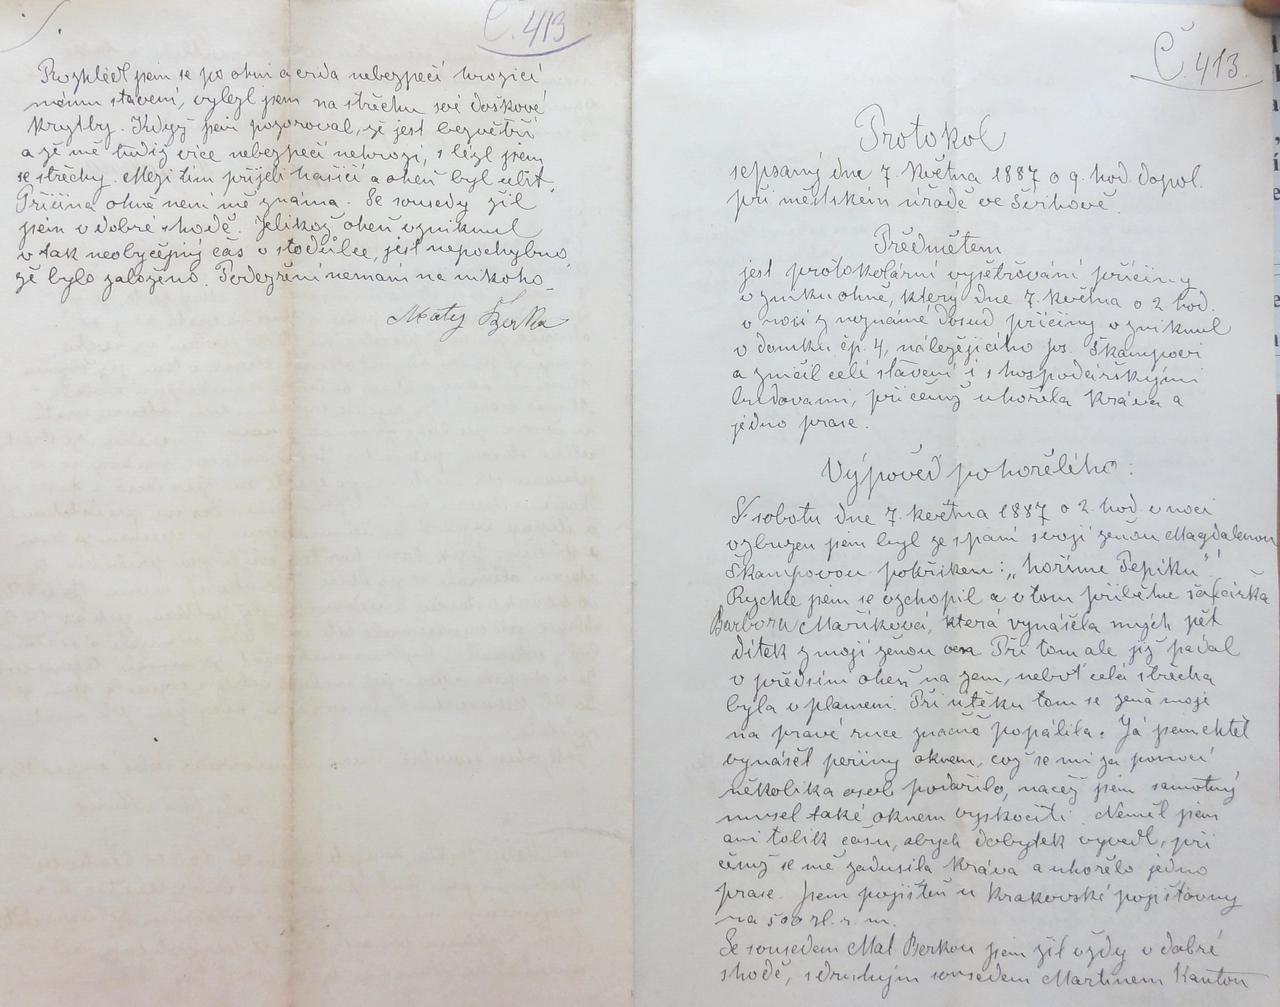 Č. 413
Rozhlédl jsem se po ohni a vida nebezpečí hrozící
mému stavení, vylezl jsem na střechu své doškové
krytby. Když jsem pozoroval, že jest bezvětří
a že mě tudíž více nebezpečí nehrozí, slézl jsem
se střechy. Mezi tím přijeli hasiči a oheň byl ulit.
Příčina ohně není mě známa. Se sousedy žil
jsem v dobré shodě. Jelikož oheň vzniknul
v tak neobyčejný čas v stodůlce, jest nepochybno,
že bylo založeno. Podezření nemám na nikoho.
Matěj Berka
Č. 413.
Protokol
sepsaný dne 7. května 1887 o 9. hod. dopol.
při městském úřadě ve Švihově.
Předmětem
jest protokolární vyšetřování příčiny
vzniku ohně, který dne 7. května o 2 hod.
v noci z neznámé dosud příčiny vzniknul
v domku čp. 4, náležejícího Jos. Škampovi
a zničil celé stavení i s hospodářskými
budovami, přičemž uhořela kráva a
jedno prase.
Výpověď pohořelého:
V sobotu dne 7. května 1887 o 2. hod. v noci
vzbuzen jsem byl ze spaní svojí ženou Magdalenou
Škampovou pokřikem: „hoříme Pepíku"!
Rychle jsem se vzchopil a v tom přiběhne šafářka
Barbora Maříková, která vynášela mých pět
dítek z mojí ženou ven. Při tom ale již padal
v předsíni oheň na zem, neboť celá střecha
byla v plameni. Při útěku tom se žena moje
na pravé ruce značně popálila. Já jsem chtěl
vynášet peřiny oknem, což se mi za pomoci
několika osob podařilo, načež jsem samotný
musel také oknem vyskočiti. Neměl jsem
ani tolik času, abych dobytek vyvedl, při
čemž se mě zadusila kráva a uhořelo jedno
prase. Jsem pojištěn u Krakovské pojišťovny
na 500 zl. r. m.
Se sousedem Mat Berkou jsem žil vždy v dobré
shodě, s druhým sousedem Martinem Kanton